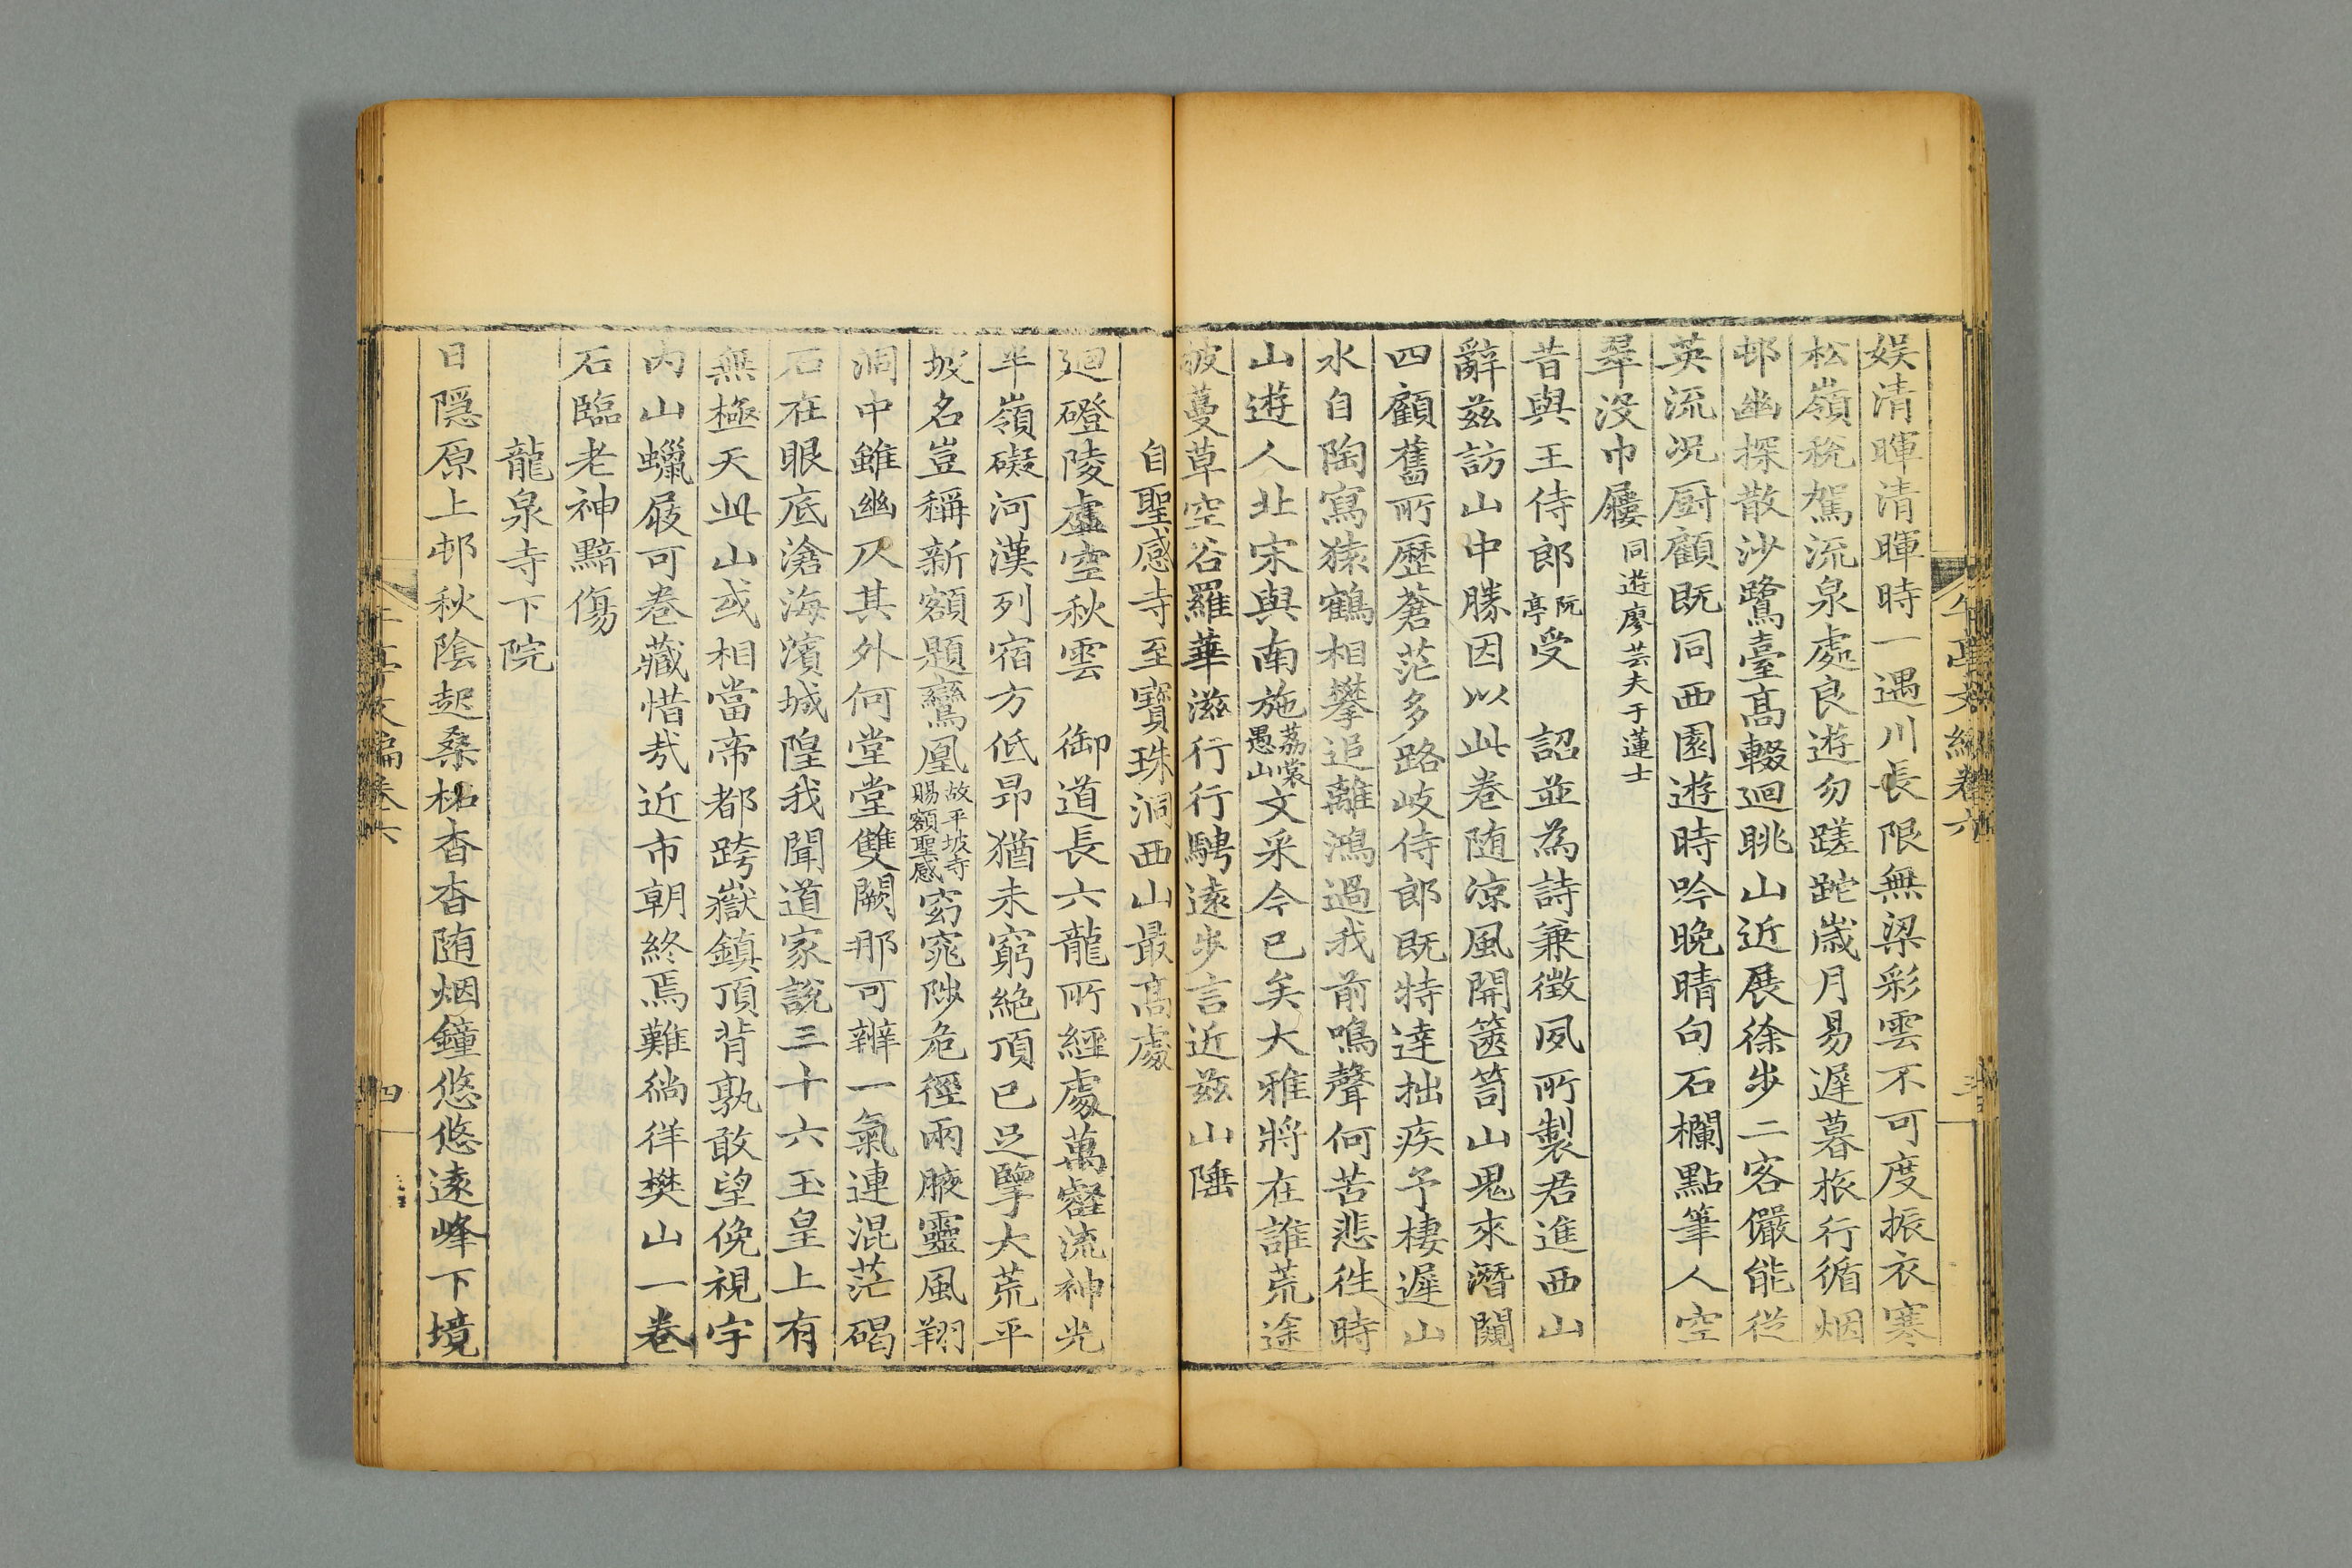 午亭文編卷六
三
娱清暉清暉時一遇川長限無梁彩雲不可度振衣寒
松嶺稅駕流泉處良遊勿蹉跎歲月易遲暮旅行循烟
邨幽探散沙鷺臺高輟迴眺山近展徐步二客儼能從
英流况厨顧既同西園遊時吟晚晴句石欄點筆人空
翠没巾屨同遊廖芸夫于蓮士
昔與王侍郎阮亭受 詔並為詩兼徵夙所製君進西山
辭茲訪山中勝因以此卷随凉風開篋笥山鬼來潛闚
四顧舊所歷蒼茫多路岐侍郎既特達拙疾予棲遲山
水自陶寫猿鶴相攀追離鴻過我前鳴聲何苦悲徃時
山遊人北宋與南施荔裳愚山文采今已矣大雅將在誰荒途
披蔓草空谷羅華滋行行騁遠步言近茲山陲
自聖感寺至寶珠洞西山最高處
迴磴陵虚空秋雲 御道長六龍所經處萬壑流神光
半嶺礙河漢列宿方低昂猶未窮絶頂已足擘大荒平
坡名豈稱新額題鸞凰故平坡寺賜額聖感窈窕陟危徑兩腋靈風翔
洞中雖幽仄其外何堂堂雙闕那可辦一氣連混茫碣
石在眼底滄海濱城隍我聞道家說三十六玉皇上有
無極天此山或相當帝都跨嶽鎮頂背孰敢望俛視宇
内山蠟屐可卷藏惜哉近市朝終焉難徜徉樊山一卷
石臨老神黯傷
龍泉寺下院
日隠原上邨秋陰起桑柘杳杳随烟鐘悠悠遠峰下境
午亭文編卷六
四